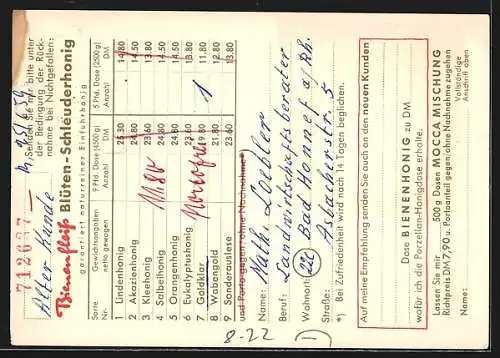 712607
M. 25/6.59
Alter Kunde
Senden Sie mir bitte unter der Bedingung der Rück-
nahme bei Nichtgefallen:
Bienenfleiß Blüten-Schleuderhonig
garantiert naturreiner Einfuhrhonig
Sorte Nr. Gewichtsangaben netto gewogen 9 Pfd. Dose (4500 g) Anzahl DM 5 Pfd. Dose (2500 g) Anzahl DM
1 Lindenhonig 25.30 14.80
2 Akazienhonig 24.80 14.50
3 Kleehonig 23.60 13.80
4 Salbeihonig 24.80 14.50
5 Orangenhonig 24.80 14.50
6 Eukalyptushonig 23.60 13.80
7 Goldklar 11.80 portofrei 1 11.80
8 Wabengold 21.80 12.80
9 Sonderauslese 23.60 13.80
und Porto gegen/ohne Nachnahme*)
Name: Math. Loehler
Beruf: Landwirtschaftsberater
Wohnort: 22c Bad Honnef a/Rh.
Straße: Asbacherstr. 5
*) Bei Zufriedenheit wird nach 14 Tagen beglichen.
Auf meine Empfehlung senden Sie auch an den neuen Kunden
Dose BIENENHONIG zu DM
wofür ich die Porzellan-Honigdose erhalte.
Lassen Sie mir 500 g Dosen MOCCA MISCHUNG
Richtpreis DM 7,90 u. Portoanteil gegen/ohne Nachnahme zugehen
Name:
Vollständige
Anschrift oben
8-22